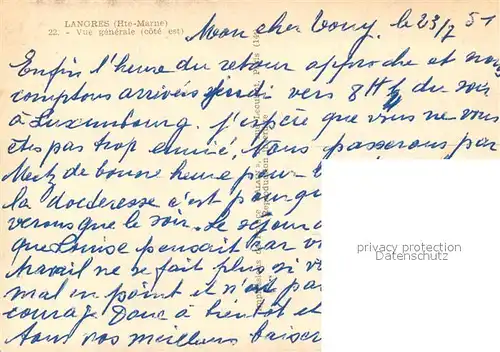 LANGRES (Hte-Marne)
22. - Vue générale (côté est)
Mon cher Tony, le 23/7 51
Enfin l'heure du retour approche et nous
comptons arriver jeudi vers 8H ½ du soir
à Luxembourg. J'espère que vous ne vous
êtes pas trop ennuié. Nous passerons par
Metz de bonne heure pour
la doctoresse c'est pourq
verons que le soir. Le séjour
que Louise pensait car v
travail ne se fait plus si v
mal en point et n'est pa
courage. Donc à bientôt et
tous nos meilleurs baiser
privacy protection
Datenschutz